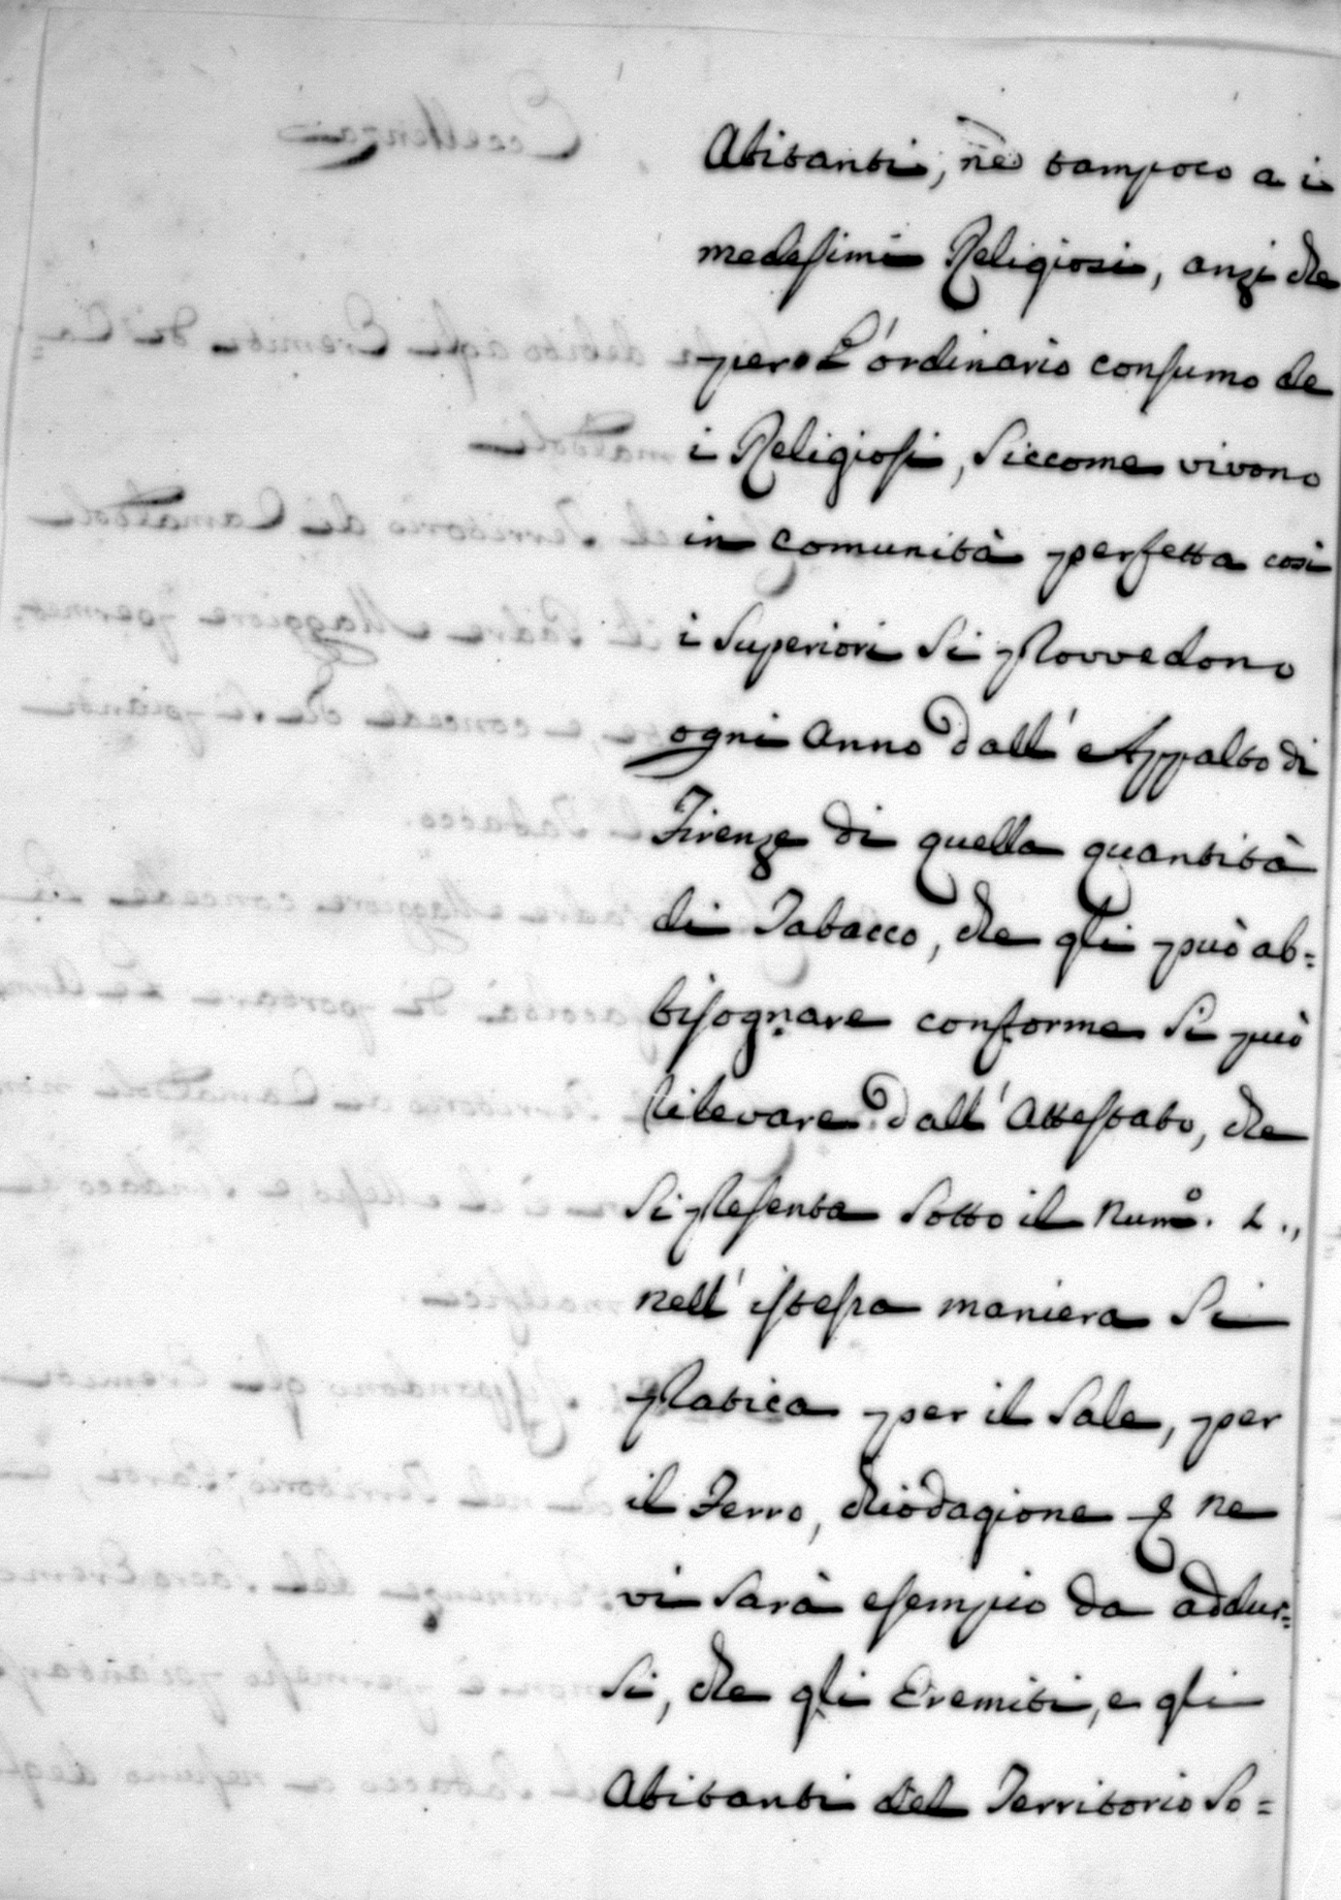 Abitanti, nè tampoco a i
medesimi Religiosi, anzi che
per L'ordinario consumo de
i Religiosi, siccome vivono
in comunità perfetta così
i Superiori si provvedono
ogni Anno dall'Appalto di
Firenze di quella quantità
di Tabacco, che gli può ab=
bisognare conforme si può
rilevare dall'Attestato, che
si presenta sotto il Num.º
nell'istessa maniera si
pratica per il Sale, per
il Ferro, ne
vi sarà esempio da addur=
si, che gli Eremiti, e gli
Abitanti del Territorio So=